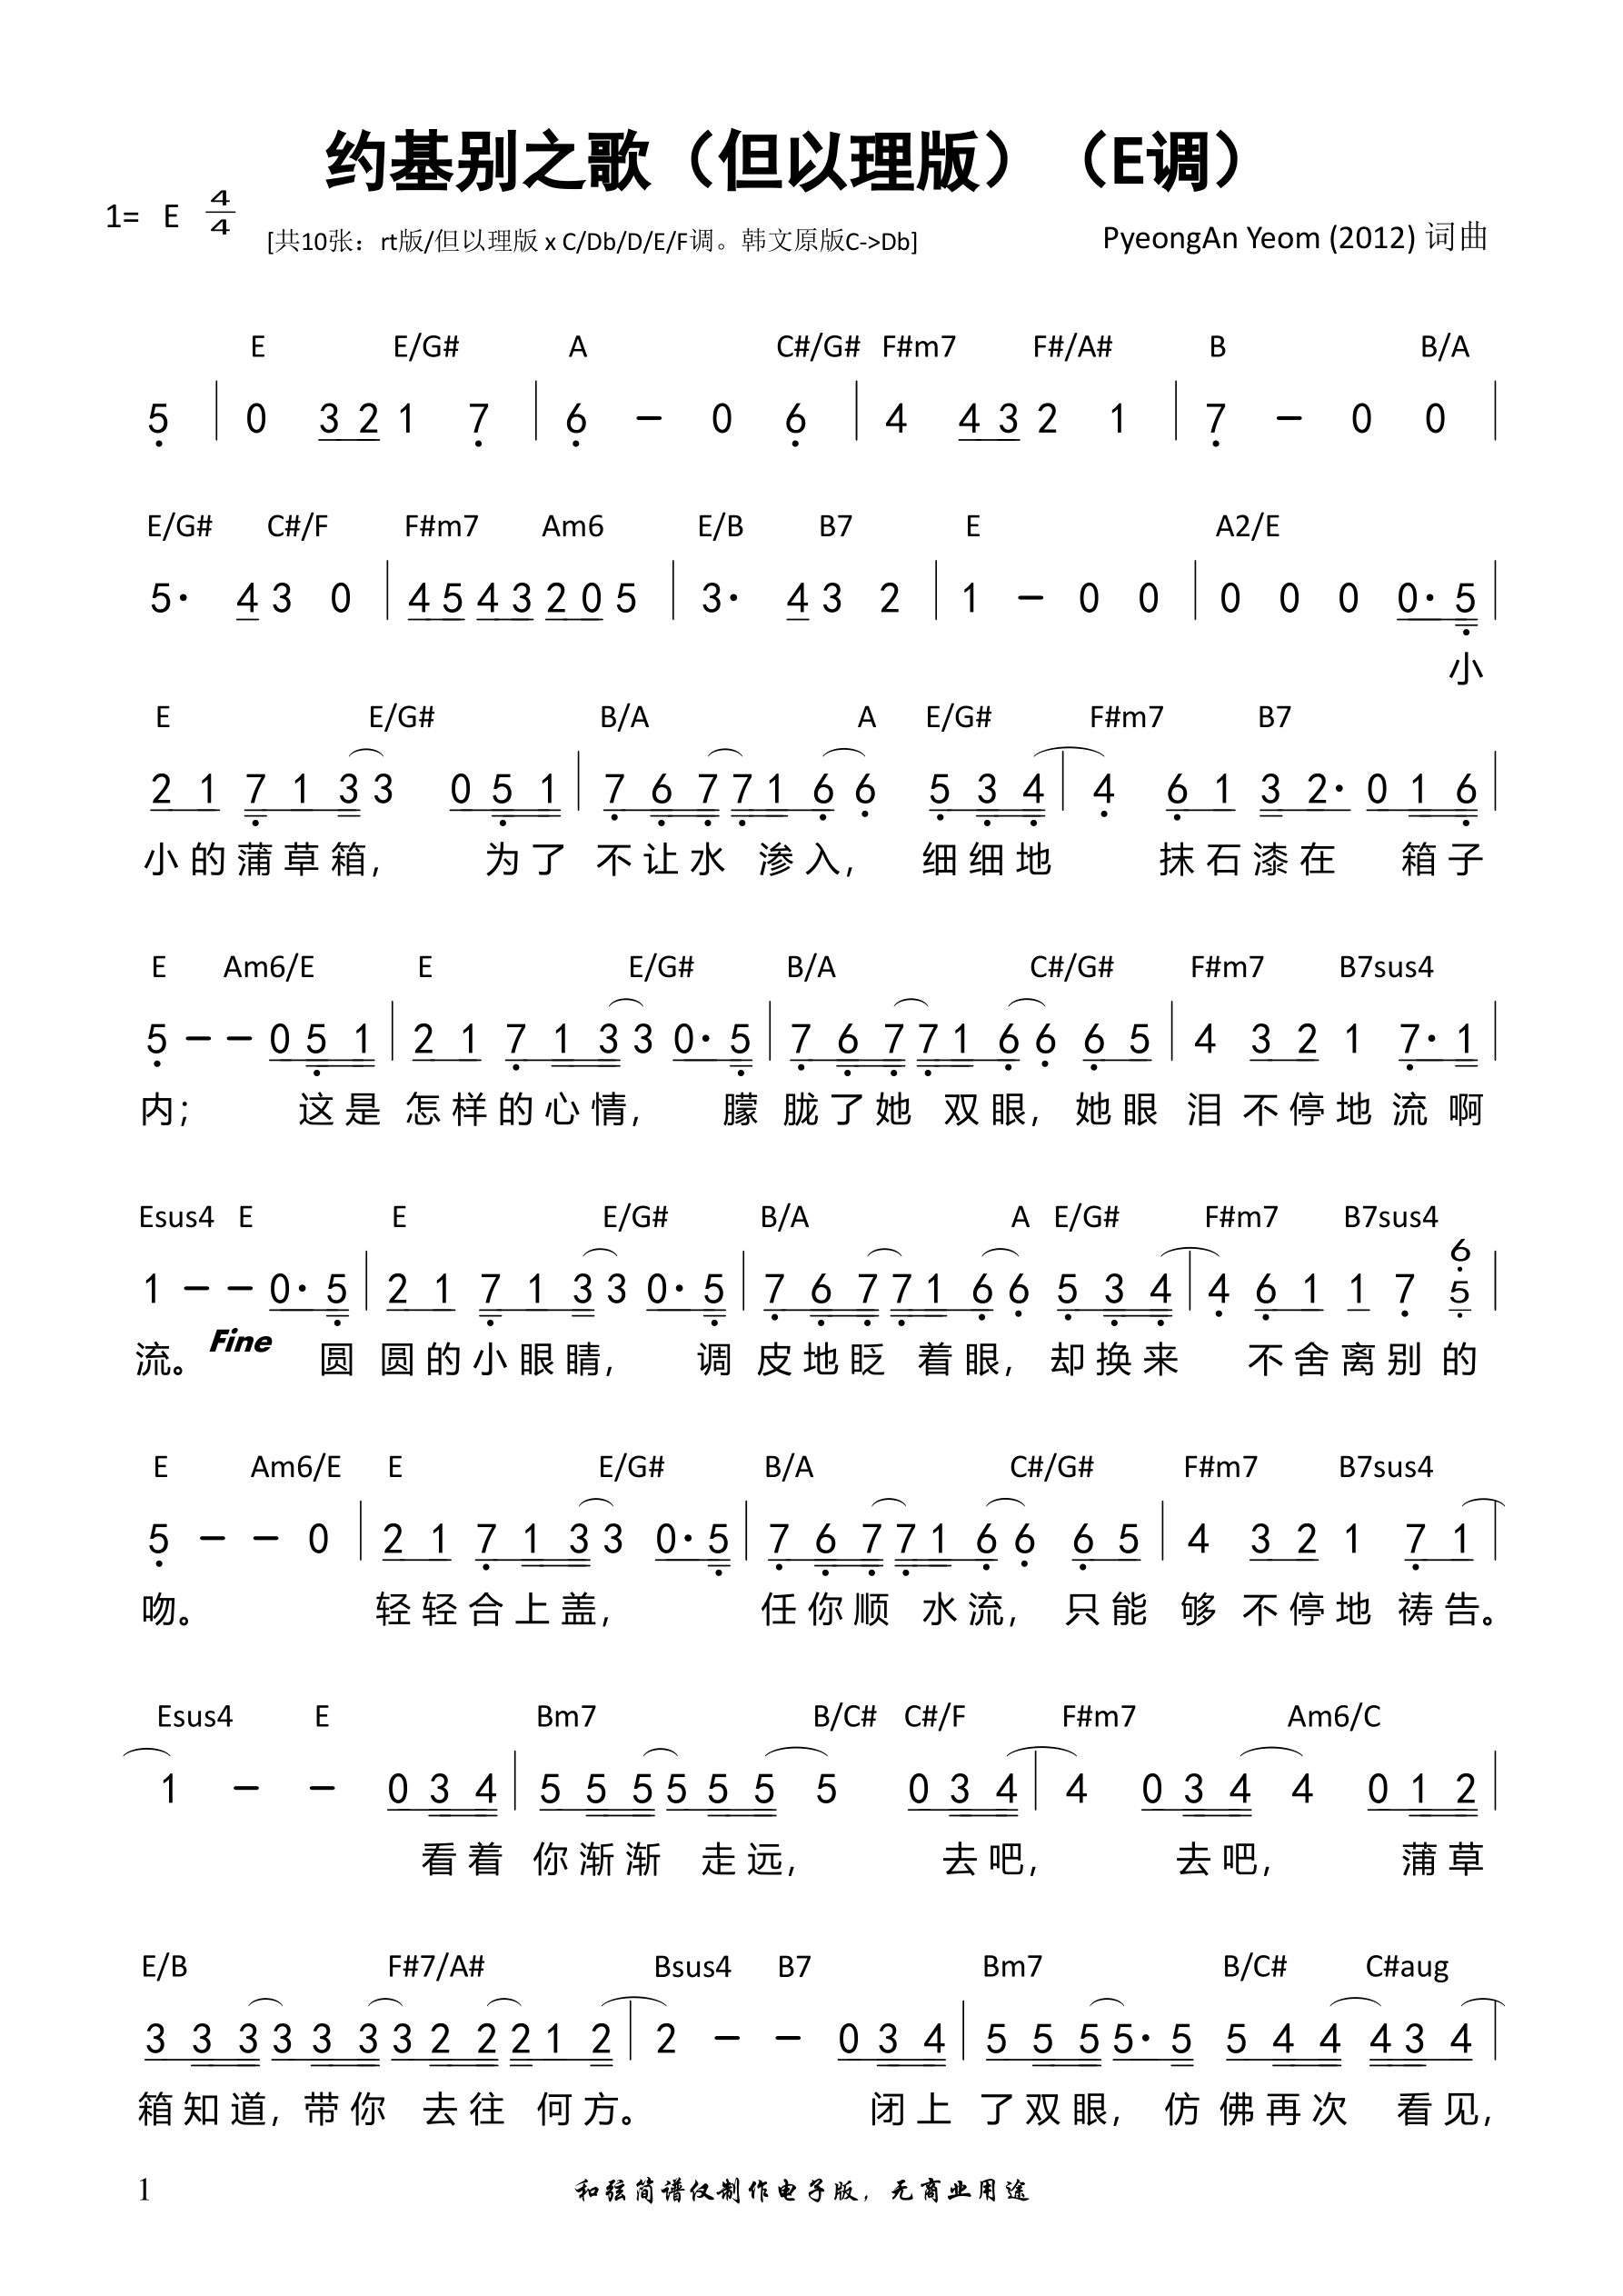 约基别之歌（但以理版）（E调）
1= E 4/4
[共10张：rt版/但以理版 x C/Db/D/E/F调。韩文原版C->Db]
PyeongAn Yeom (2012) 词曲
E E/G# A C#/G# F#m7 F#/A# B B/A
5 | 0 3 2 1 7 | 6 – 0 6 | 4 4 3 2 1 | 7 – 0 0 |
E/G# C#/F F#m7 Am6 E/B B7 E A2/E
5· 4 3 0 | 4 5 4 3 2 0 5 | 3· 4 3 2 | 1 – 0 0 | 0 0 0 0· 5 |
小
E E/G# B/A A E/G# F#m7 B7
2 1 7 1 3 3 0 5 1 | 7 6 7 7 1 6 6 5 3 4 | 4 6 1 3 2· 0 1 6 |
小的蒲草箱, 为了 不让水 渗入, 细细地 抹石漆在 箱子
E Am6/E E E/G# B/A C#/G# F#m7 B7sus4
5 – – 0 5 1 | 2 1 7 1 3 3 0· 5 | 7 6 7 7 1 6 6 6 5 | 4 3 2 1 7· 1 |
内; 这是 怎样的心情, 朦 胧了她 双眼, 她眼 泪 不停地 流 啊
Esus4 E E E/G# B/A A E/G# F#m7 B7sus4
1 – – 0· 5 | 2 1 7 1 3 3 0· 5 | 7 6 7 7 1 6 6 5 3 4 | 4 6 1 1 7 6 5 |
流。 Fine 圆 圆的小眼睛, 调 皮地眨 着眼, 却换来 不舍离别 的
E Am6/E E E/G# B/A C#/G# F#m7 B7sus4
5 – – 0 | 2 1 7 1 3 3 0· 5 | 7 6 7 7 1 6 6 6 5 | 4 3 2 1 7 1 |
吻。 轻轻合上盖, 任你顺 水流, 只能 够 不停地 祷告。
Esus4 E Bm7 B/C# C#/F F#m7 Am6/C
1 – – 0 3 4 | 5 5 5 5 5 5 5 0 3 4 | 4 0 3 4 4 0 1 2 |
看着 你渐渐 走远, 去吧, 去吧, 蒲草
E/B F#7/A# Bsus4 B7 Bm7 B/C# C#aug
3 3 3 3 3 3 3 2 2 2 1 2 | 2 – – 0 3 4 | 5 5 5 5· 5 5 4 4 4 3 4 |
箱知道, 带你 去往 何方。 闭上 了双眼, 仿 佛再次 看见,
1
和弦简谱仅制作电子版, 无商业用途